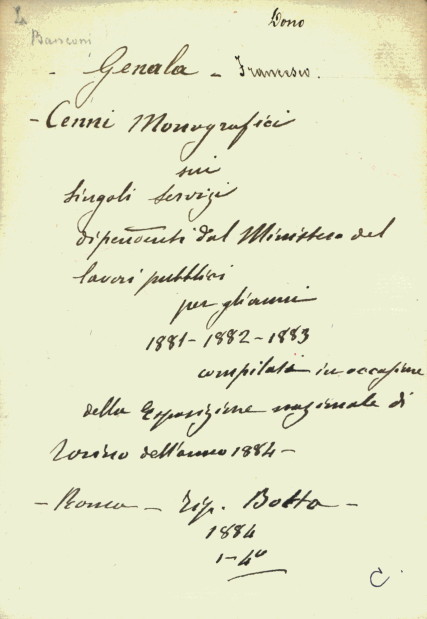 Dono
Banconi
- Genala - Francesco.
- Cenni Monografici
sui
singoli servizi
dipendenti dal Ministero del
lavori pubblici
per gli anni
1881 - 1882 - 1883
compilati in occasione
della Esposizione nazionale di
Torino dell'anno 1884 -
- Roma - Tip. Botta -
1884
1-4°
C